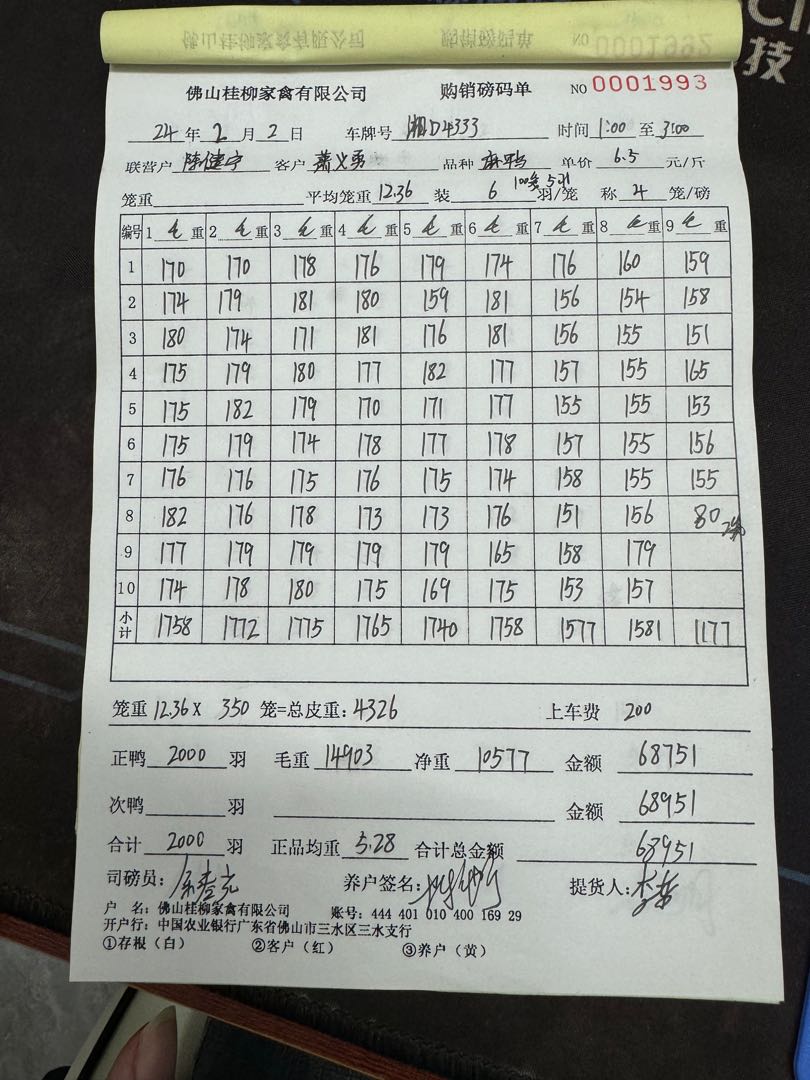 技
佛山桂柳家禽有限公司 购销磅码单 NO 0001993
24 年 2 月 2 日 车牌号 湘D4333 时间 1:00 至 3:00
联营户 陈健宁 客户 萧义勇 品种 麻鸭 单价 6.5 元/斤
笼重 平均笼重 12.36 装 6 羽/笼 称 4 笼/磅
编号 1 毛 重 2 毛 重 3 毛 重 4 毛 重 5 毛 重 6 毛 重 7 毛 重 8 毛 重 9 毛 重
1 170 170 178 176 179 174 176 160 159
2 174 179 181 180 159 181 156 154 158
3 180 174 171 181 176 181 156 155 151
4 175 179 180 177 182 177 157 155 165
5 175 182 179 170 171 177 155 155 153
6 175 179 174 178 177 178 157 155 156
7 176 176 175 176 175 174 158 155 155
8 182 176 178 173 173 176 151 156 80
9 177 179 179 179 179 165 158 179
10 174 178 180 175 169 175 153 157
小计 1758 1772 1775 1765 1740 1758 1577 1581 1177
笼重 12.36 X 350 笼=总皮重: 4326 上车费 200
正鸭 2000 羽 毛重 14903 净重 10577 金额 68751
次鸭 羽 金额 68951
合计 2000 羽 正品均重 5.28 合计总金额 68951
司磅员: 养户签名: 提货人:
户 名: 佛山桂柳家禽有限公司 账号: 444 401 010 400 169 29
开户行: 中国农业银行广东省佛山市三水区三水支行
①存根（白） ②客户（红） ③养户（黄）